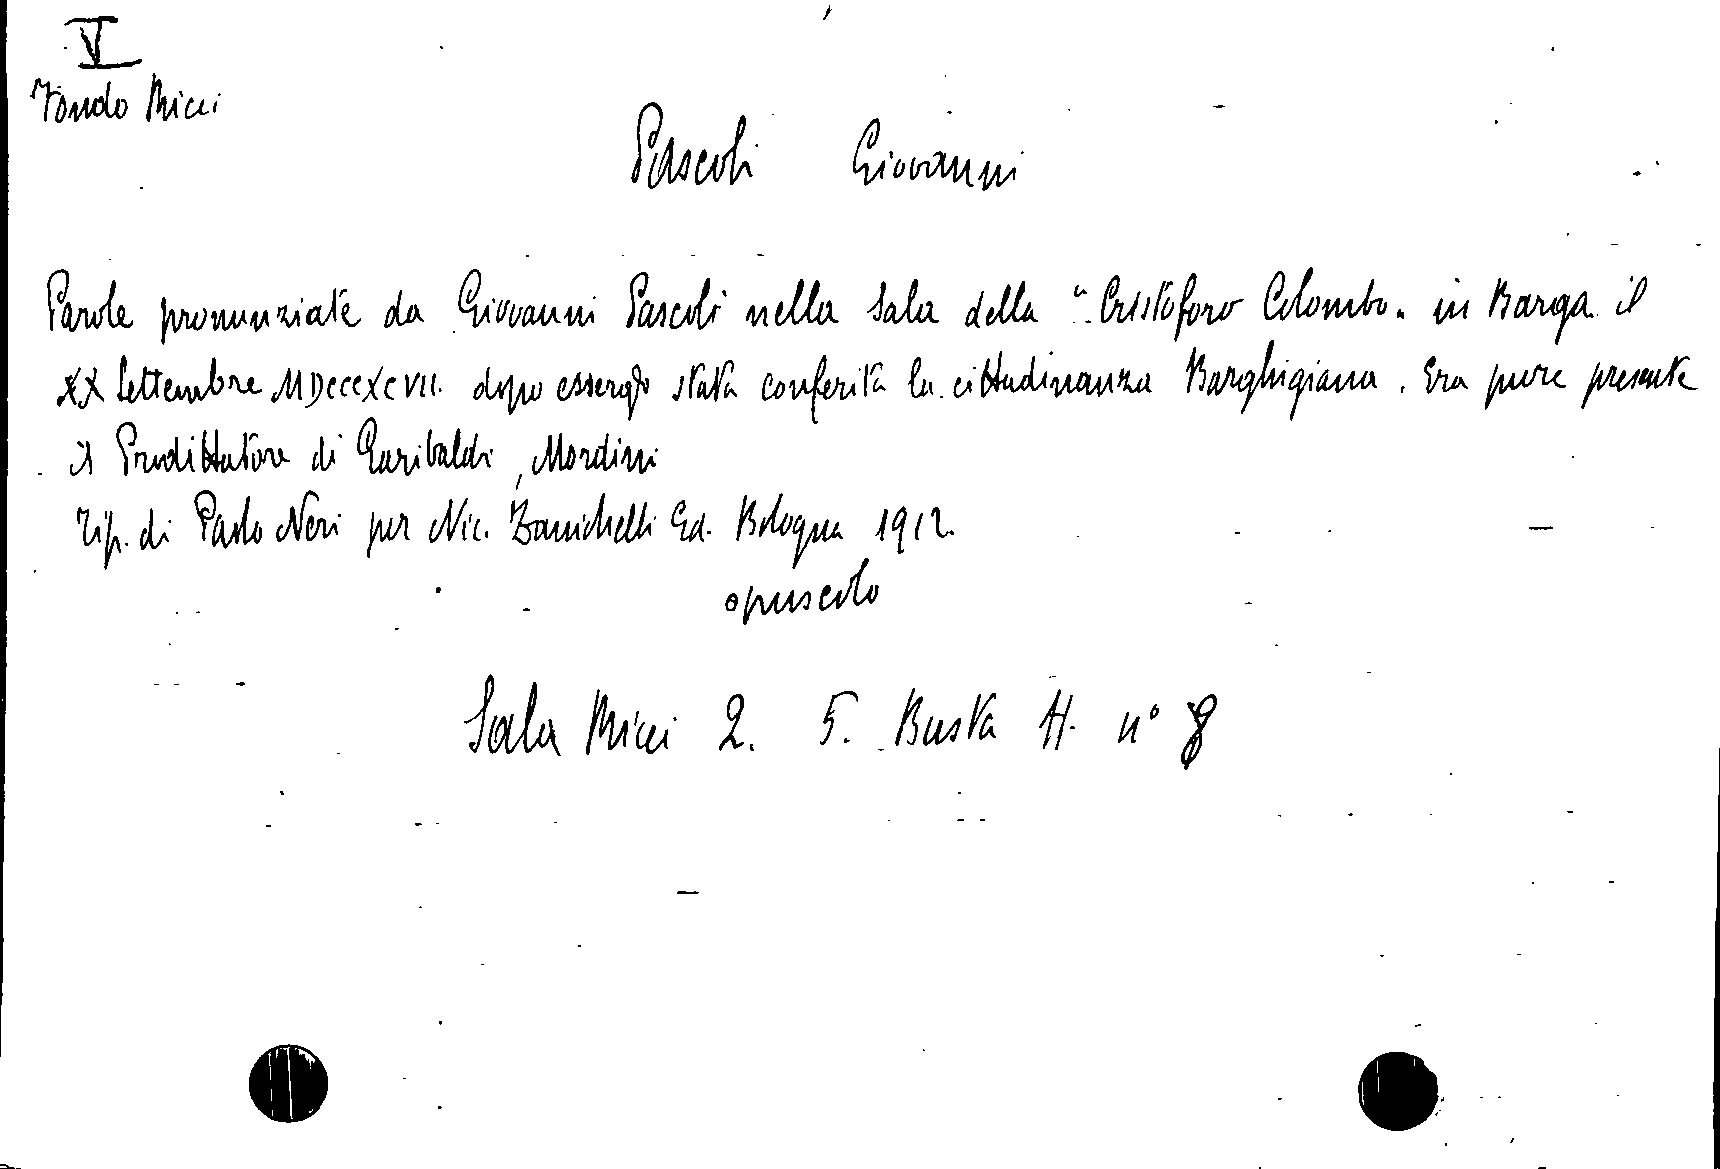 V
Fondo Ricci
Pascoli Giovanni
Parole pronunziate da Giovanni Pascoli nella Sala della "Cristoforo Colombo" in Barga il
XX Settembre MDCCCXCVII. dopo essergli stata conferita la cittadinanza Barghigiana. Era pure presente
il Prodittatore di Garibaldi, Mordini
Tip. di Paolo Neri per Nic. Zanichelli Ed. Bologna 1912.
opuscolo
Sala Ricci 2. 5. Busta H. n° 8